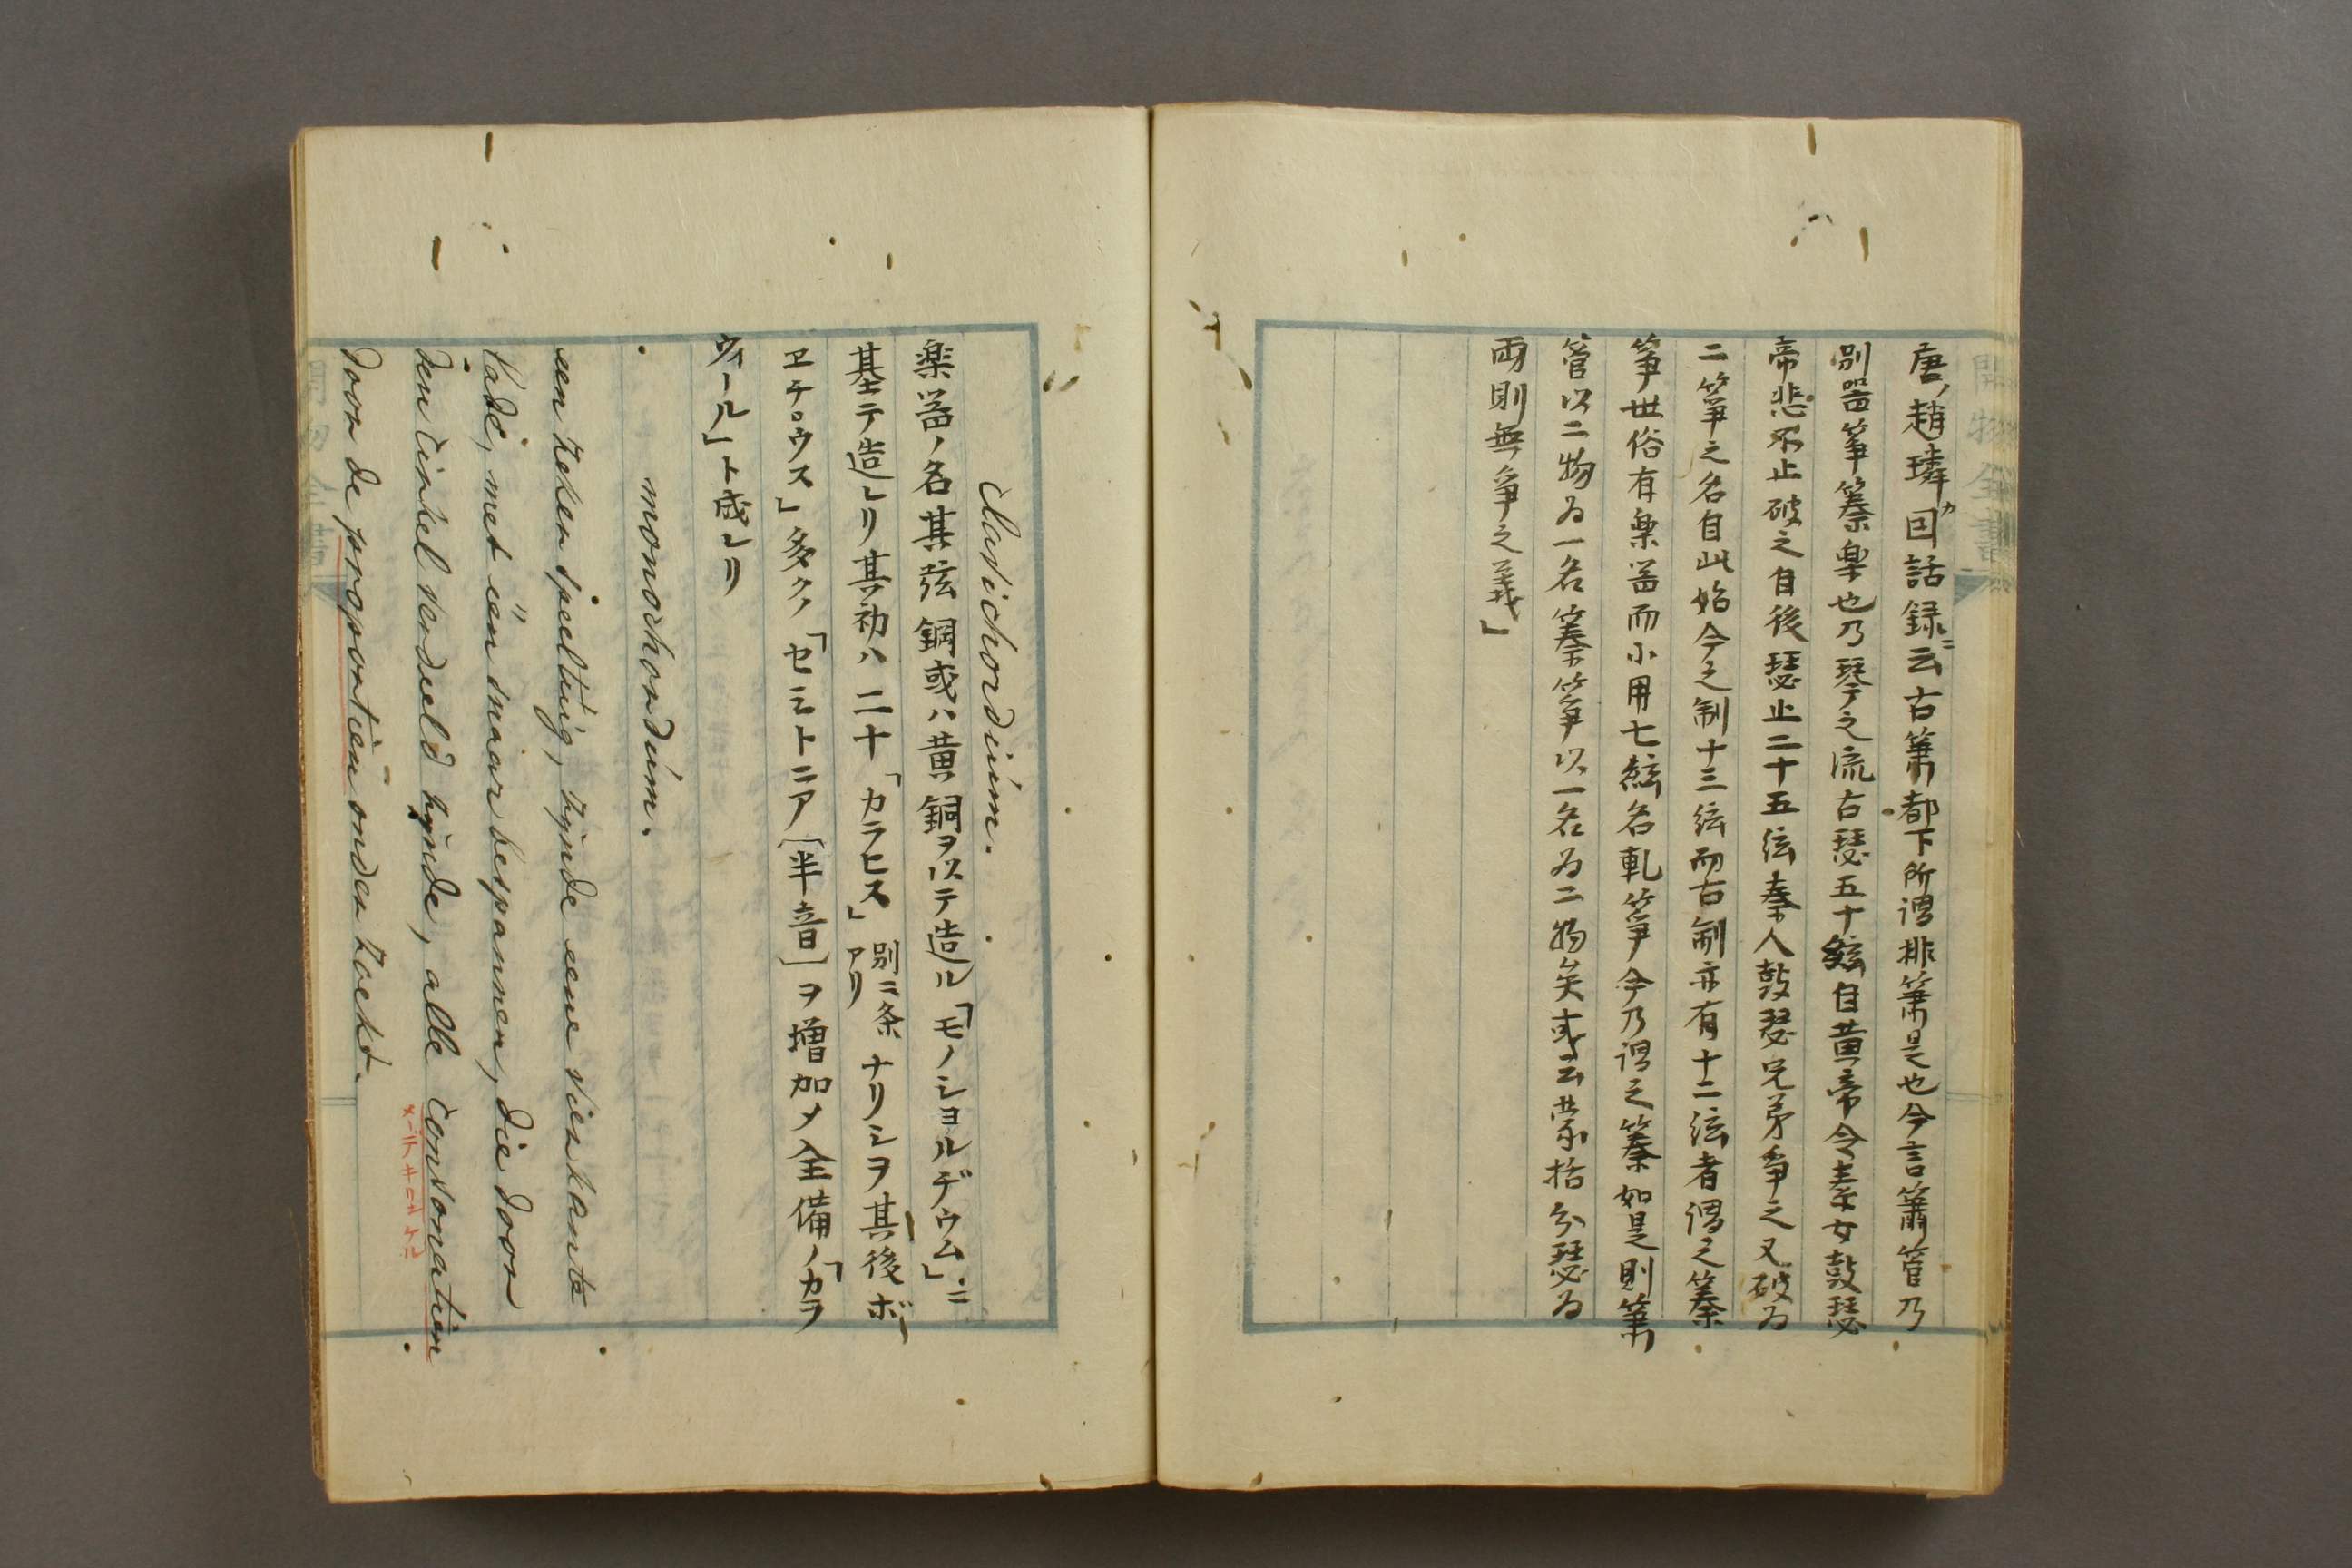 唐ノ趙璘カ因話録ニ云古簫都下所謂排簫是也今言簫管乃
別器箏䈜楽也乃琴之流古瑟五十絃自黄帝令素女鼓瑟
帝悲不止破之自後瑟止二十五絃秦人鼓瑟兄弟争之又破為
二箏之名自此始今之制十三絃而古制亦有十二絃者謂之䈜
箏世俗有楽器而小用七絃名軋箏今乃謂之䈜如是則簫
管以二物為一名䈜箏以一名為二物矣或云蒙恬分瑟為
両則無争之義」
Clavichordium.
楽器ノ名其弦鋼或ハ黄銅ヲ以テ造ル「モノショルヂウム」ニ
基テ造レリ其初ハ二十「カラヒス」別ニ条アリナリシヲ其後ボ
ヱチウス」多クノ「セミトニア〔半音〕ヲ増加メ全備ノ「カラ
ヴィール」ト成レリ
monochordium.
een zeker speeltuig, zijnde eene vierkante
lade, met een snaar bespannen, die door
den cirkel verdeeld zijnde, alle consonatien
door de proportien onderzoekt.
開物全書